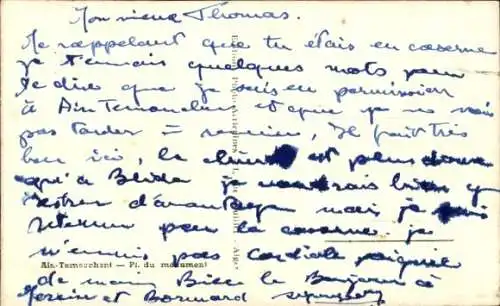 Mon vieux Thomas.
Me rappelant que tu étais en caserne
je t'envais quelques mots pour
te dire que je suis en permission
à Ain Temouchent et que je ne vais
pas tarder à revenir, Il fait très
bon ici, le climat est plus doux
qu'à Blida je voudrais bien y
rester d'avantage mais je dois
retourner pour la caserne. je
m'ennuis pas Cordiale poignée
Ain-Temouchent — Pl. du monument
de main Bien le Bonjour à
et Bernard